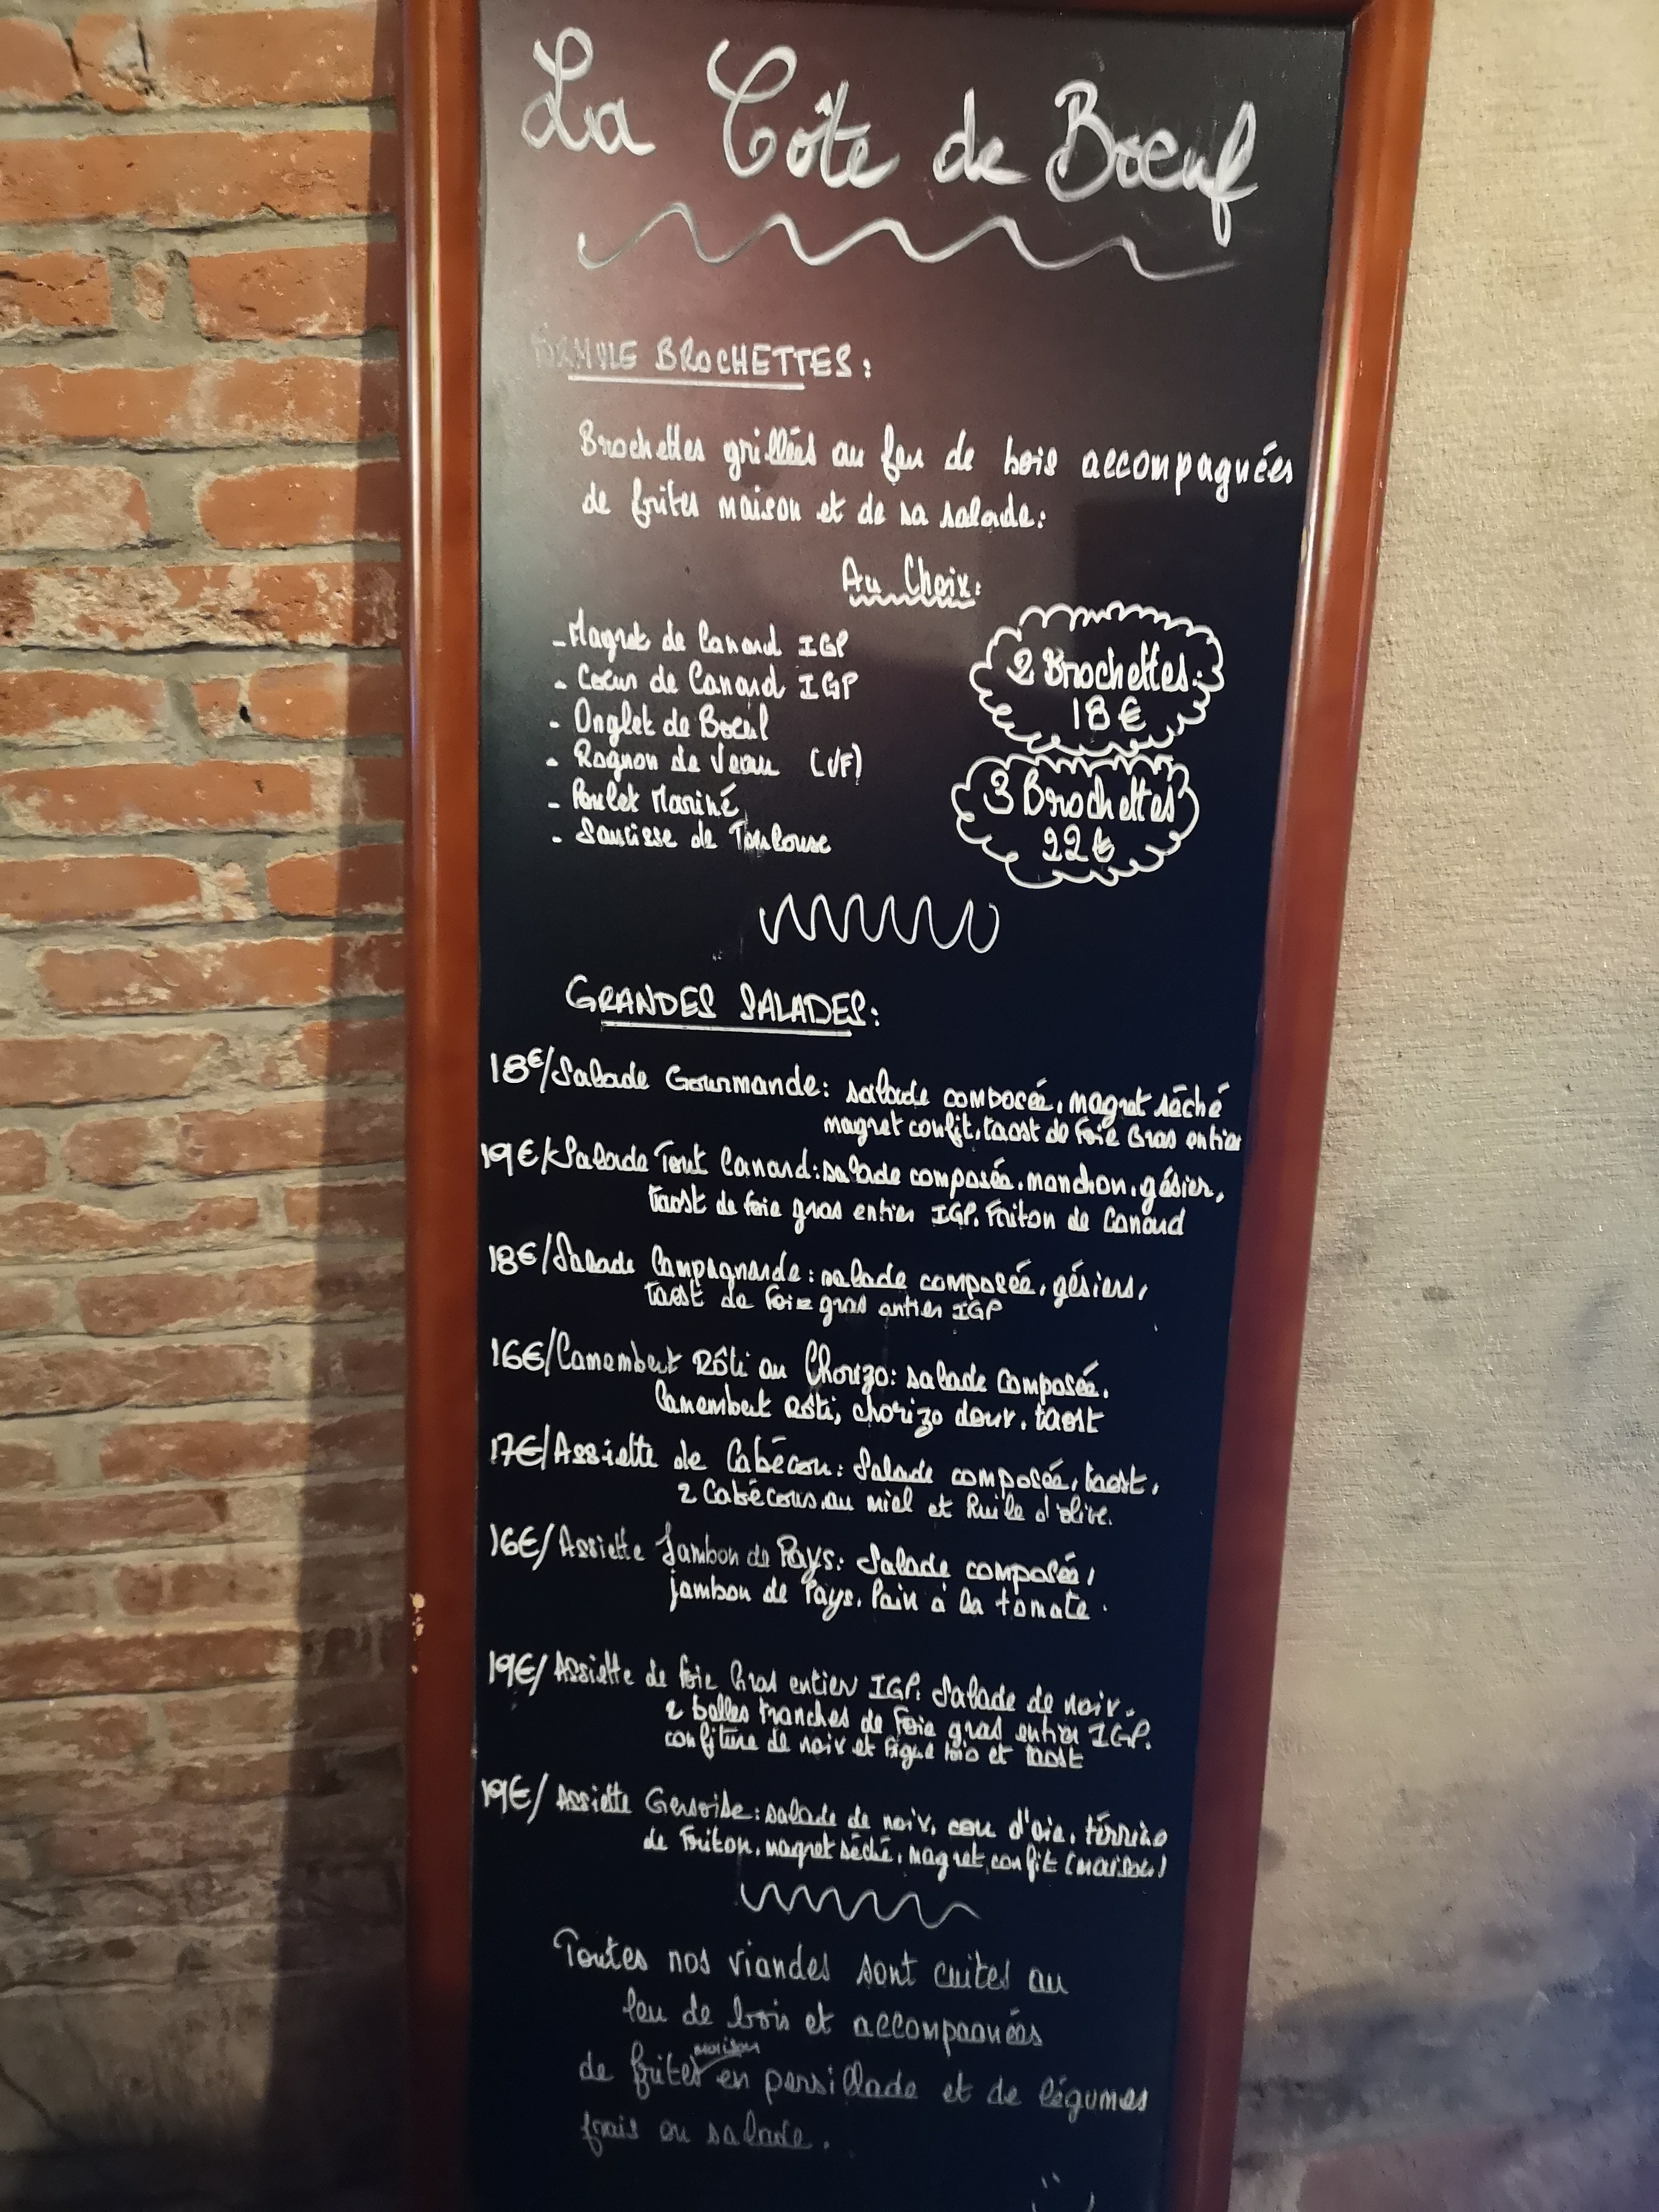 La Côte de Bœuf
FORMULE BROCHETTES:
Brochettes grillées au feu de bois accompagnées
de frites maison et de sa salade:
Au Choix:
- Magret de Canard IGP
- Cœur de Canard IGP
- Onglet de Bœuf
- Rognon de Veau (VF)
- Poulet Mariné
- Saucisse de Toulouse
2 Brochettes:
18€
3 Brochettes
22€
GRANDES SALADES:
18€/Salade Gourmande: salade composée, magret séché
magret confit, taost de Foie Gras entier
19€/Salade Tout Canard: salade composée, manchon, gésier,
taost de foie gras entier IGP, Friton de Canard
18€/Salade Campagnarde: salade composée, gésiers,
taost de Foie gras entier IGP
16€/Camembert Rôti au Chorizo: salade composée,
Camembert Rôti, chorizo doux, taost
17€/Assiette de Cabécou: Salade composée, taost,
2 Cabécous au miel et huile d'olive.
16€/Assiette Jambon de Pays: Salade composée,
jambon de Pays, Pain à la tomate.
19€/Assiette de foie Gras entier IGP: Salade de noix,
2 belles tranches de Foie gras entier IGP,
confiture de noix et Figue bio et taost
19€/Assiette Gersoise: salade de noix, cou d'oie, térrine
de Friton, magret séché, magret confit (maison)
Toutes nos viandes sont cuites au
feu de bois et accompagnées
de frites maison en persillade et de légumes
frais ou salade.